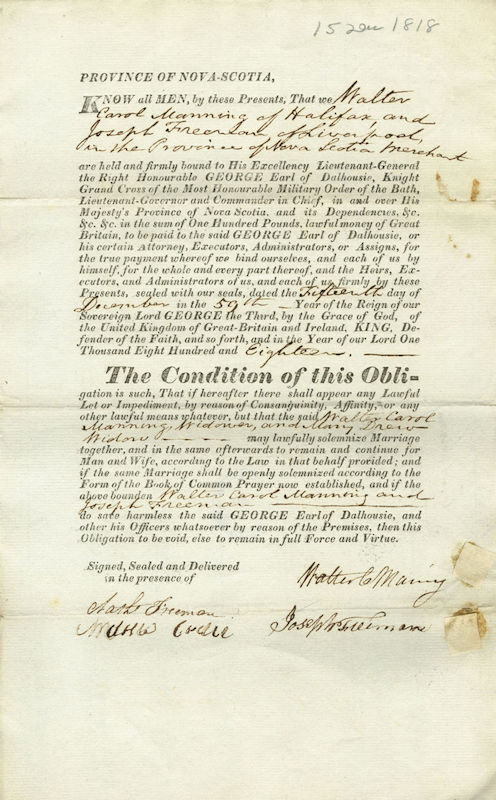 15 Dec 1818
PROVINCE OF NOVA-SCOTIA,
KNOW all MEN, by these Presents, That we Walter
Carol Manning of Halifax, and
Joseph Freeman of Liverpool,
in the Province of Nova Scotia Merchant
are held and firmly bound to His Excellency Lieutenant-General
the Right Honourable GEORGE Earl of Dalhousie, Knight
Grand Cross of the Most Honourable Military Order of the Bath,
Lieutenant-Governor and Commander in Chief, in and over His
Majesty's Province of Nova Scotia. and its Dependencies, &c.
&c. &c. in the sum of One Hundred Pounds, lawful money of Great
Britain, to be paid to the said GEORGE Earl of Dalhousie, or
his certain Attorney, Executors, Administrators, or Assigns, for
the true payment whereof we bind ourselves, and each of us by
himself, for the whole and every part thereof, and the Heirs, Ex-
ecutors, and Administrators of us, and each of us, firmly by these
Presents, sealed with our seals, dated the Fifteenth day of
December in the 59th Year of the Reign of our
Sovereign Lord GEORGE the Third, by the Grace of God, of
the United Kingdom of Great-Britain and Ireland, KING, De-
fender of the Faith, and so forth, and in the Year of our Lord One
Thousand Eight Hundred and Eighteen.
The Condition of this Obli-
gation is such, That if hereafter there shall appear any Lawful
Let or Impediment, by reason of Consanguinity, Affinity, or any
other lawful means whatever, but that the said Walter Carol
Manning, Widower, and Mary Drew
Widow may lawfully solemnize Marriage
together, and in the same afterwards to remain and continue for
Man and Wife, according to the Law in that behalf provided; and
if the same Marriage shall be openly solemnized according to the
Form of the Book of Common Prayer now established, and if the
above bounden Walter Carol Manning and
Joseph Freeman
do save harmless the said GEORGE Earl of Dalhousie, and
other his Officers whatsoever by reason of the Premises, then this
Obligation to be void, else to remain in full Force and Virtue.
Signed, Sealed and Delivered
in the presence of
Walter C Maning
Freeman
Joseph Freeman